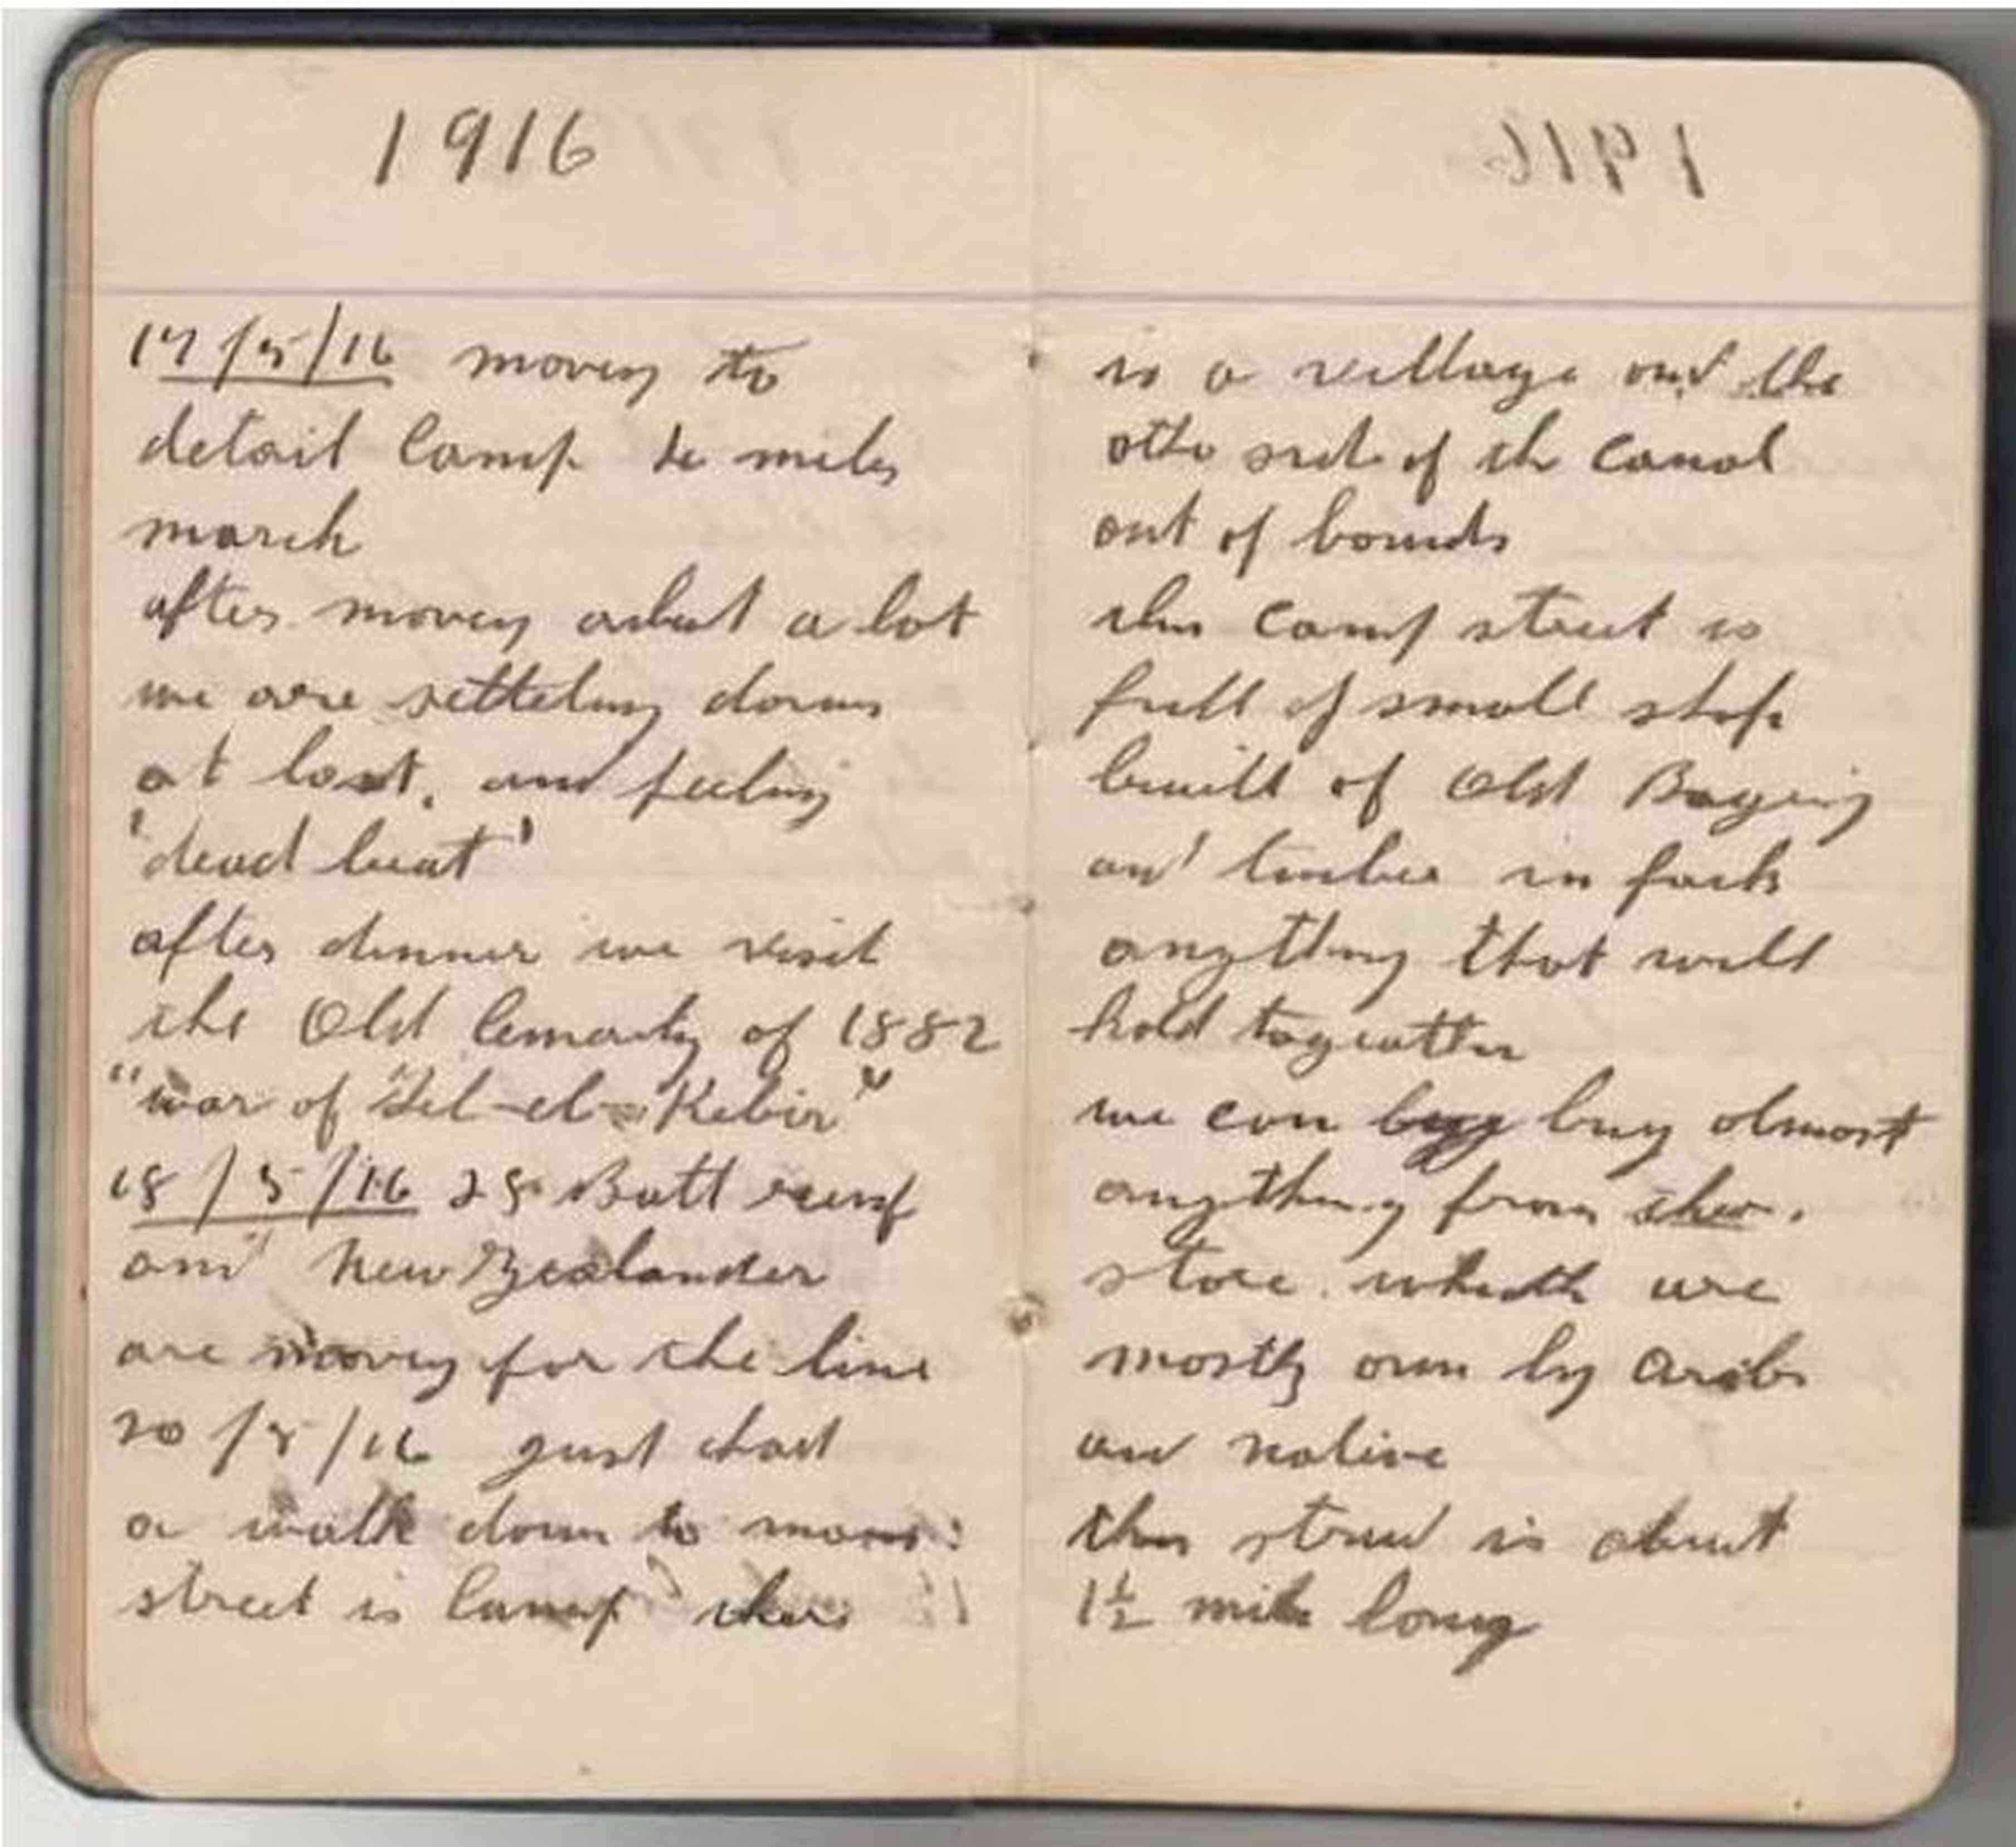 1916
17/5/16 moving to
detail Camp miles
march
after moving about a lot
we are setteling down
at last, and feeling
'dead beat'
after dinner we visit
the Old Cematy of 1882
"war of "Tel-el-Kebir"
18/5/16 Batt reinf
and New Zealander
are moving for the line
20/5/16 just had
a walk down to
street is Camp
is a village and the
othe side of the Canal
out of bounds
this Camp street is
full of small shops
built of Old Bagging
and timber in fack
anything that will
hold togeatther
we can buy almost
anything from
store. we
mostly own by Arabs
and native
this is about
1½ mile long